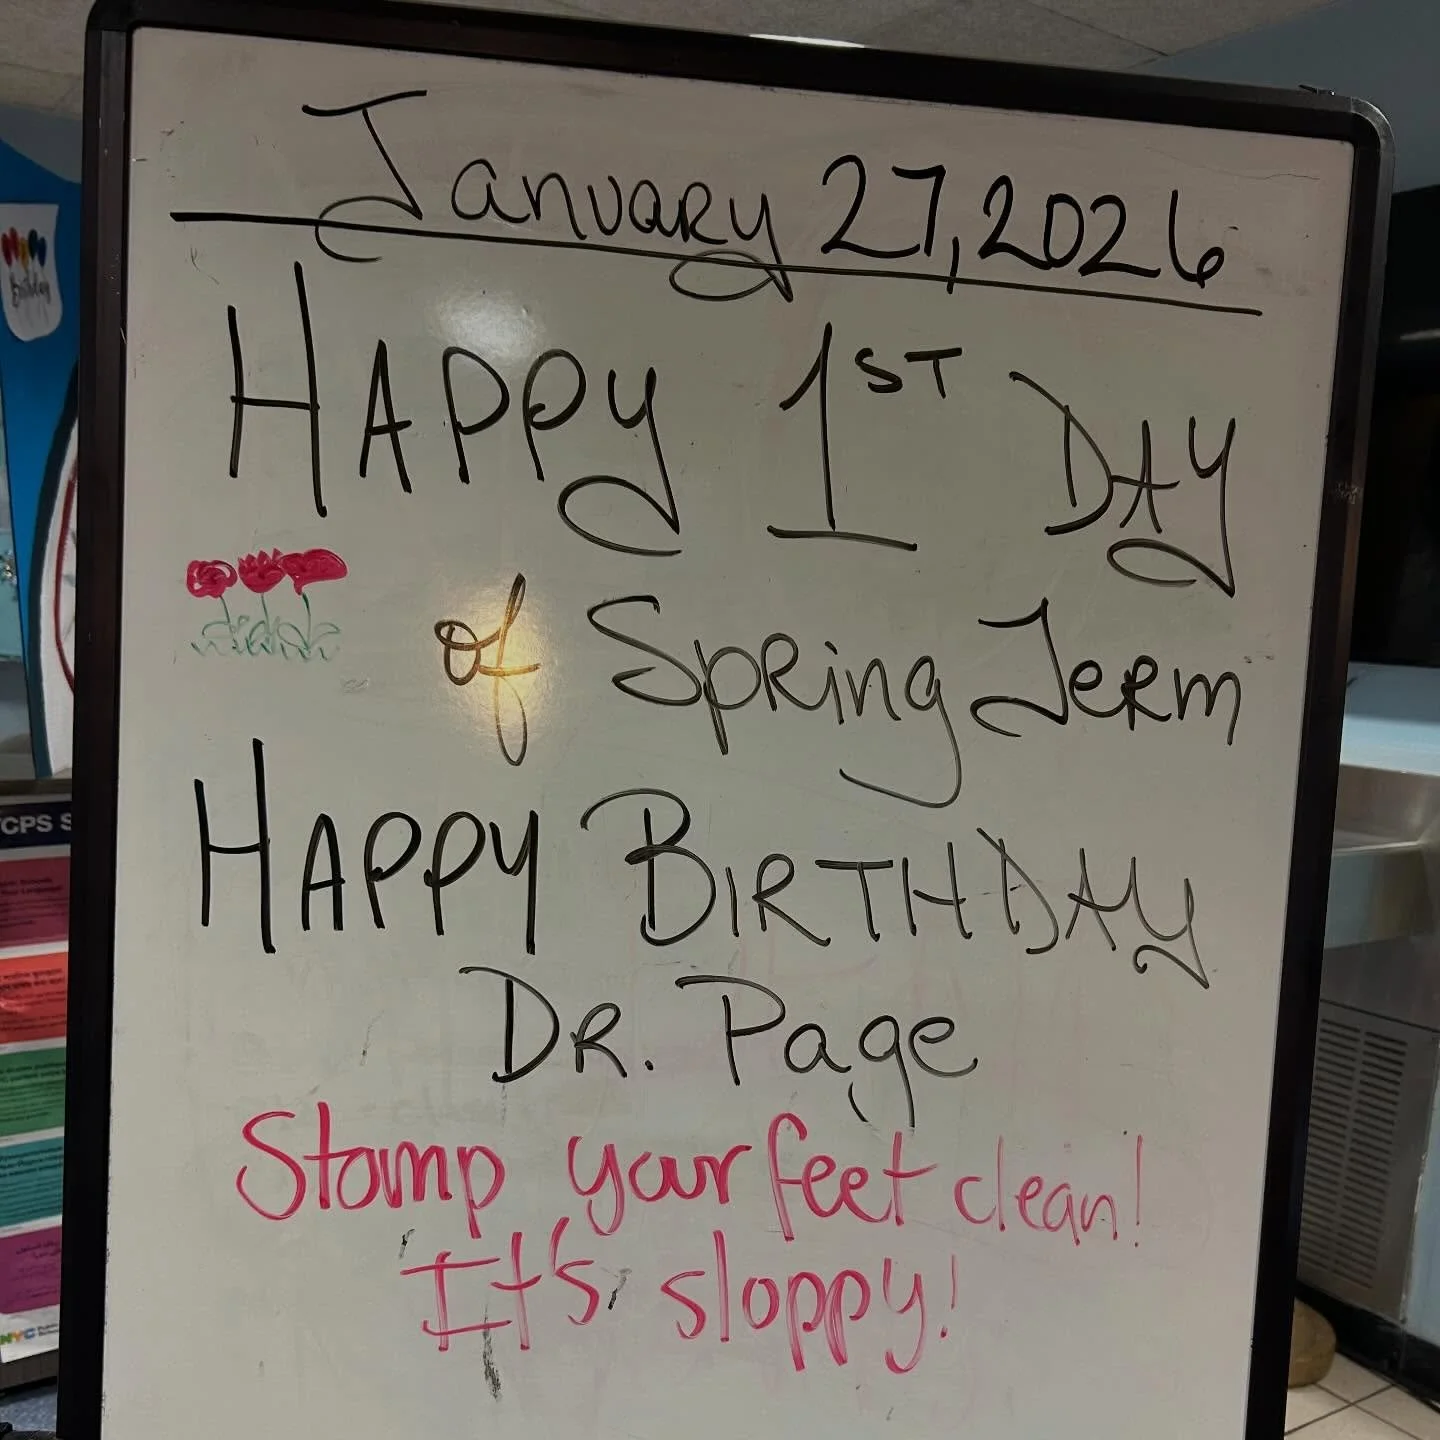 January 27, 2026
HAPPY 1ST DAY
of SPRing TERM
HAPPY BIRTHDAY
DR. Page
Stamp your feet clean!
It's sloppy!
Birthday
CPS S
NYC